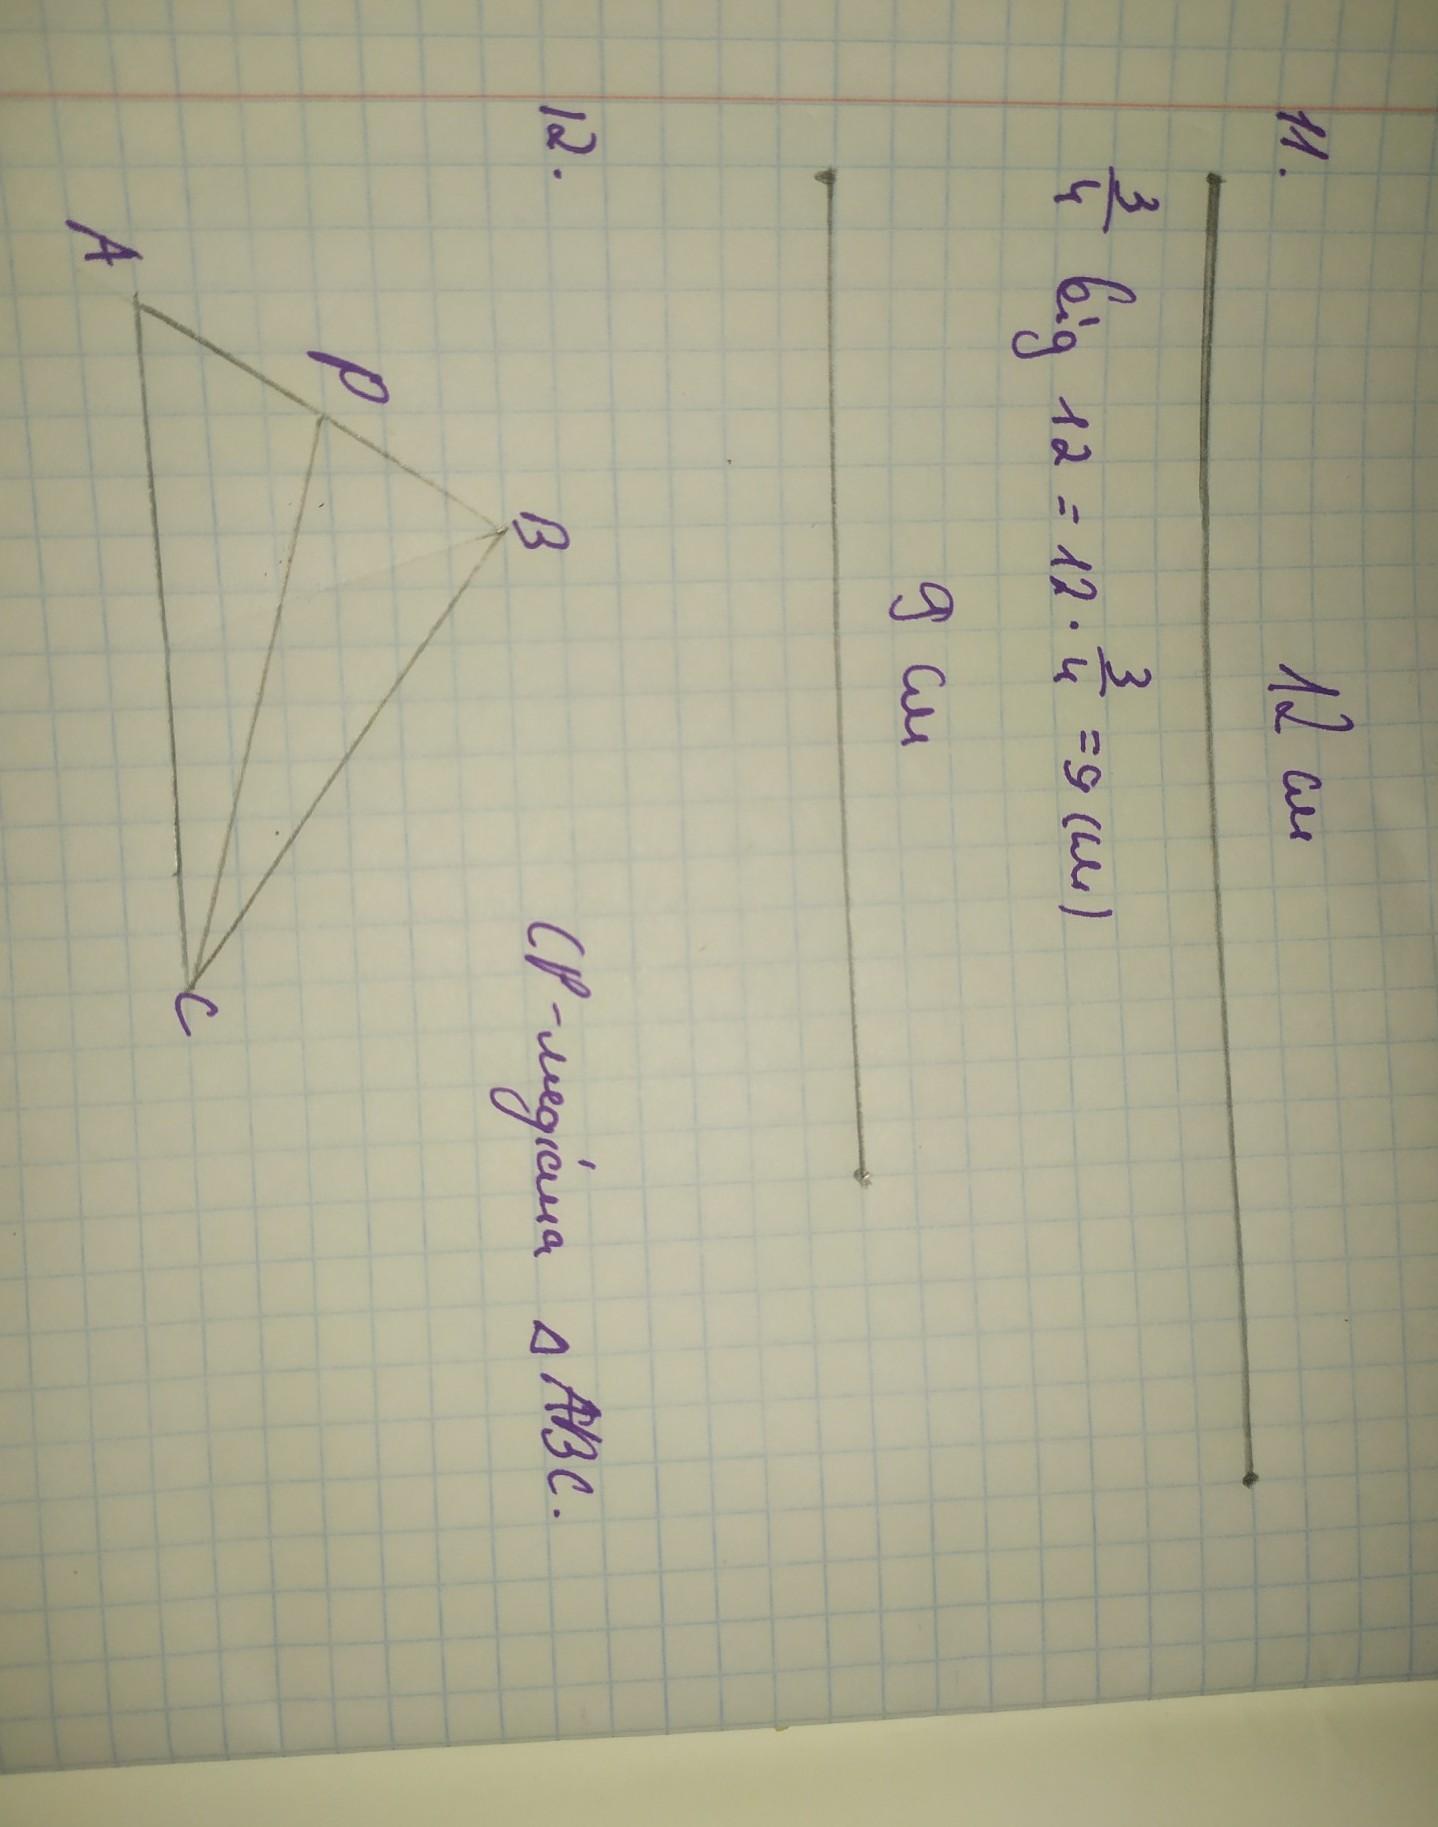 11.
12 см
3/4 від 12 = 12 · 3/4 = 9 (см)
9 см
12.
CP - медіана △ ABC.
B
P
A
C